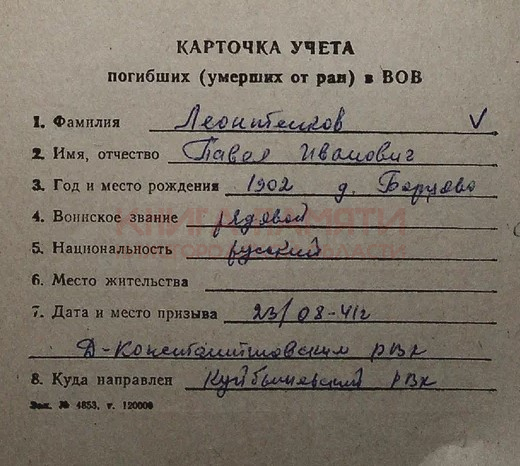 КАРТОЧКА УЧЕТА
погибших (умерших от ран) в ВОВ
1. Фамилия Леонтенков V
2. Имя, отчество Павел Иванович
3. Год и место рождения 1902 д. Борцово
4. Воинское звание рядовой
КНИГА ПАМЯТИ
5. Национальность русский
6. Место жительства
7. Дата и место призыва 23/08-41г
Д-Константиновским РВК
8. Куда направлен Куйбышевский РВК
Зак. № 4853, т. 120000